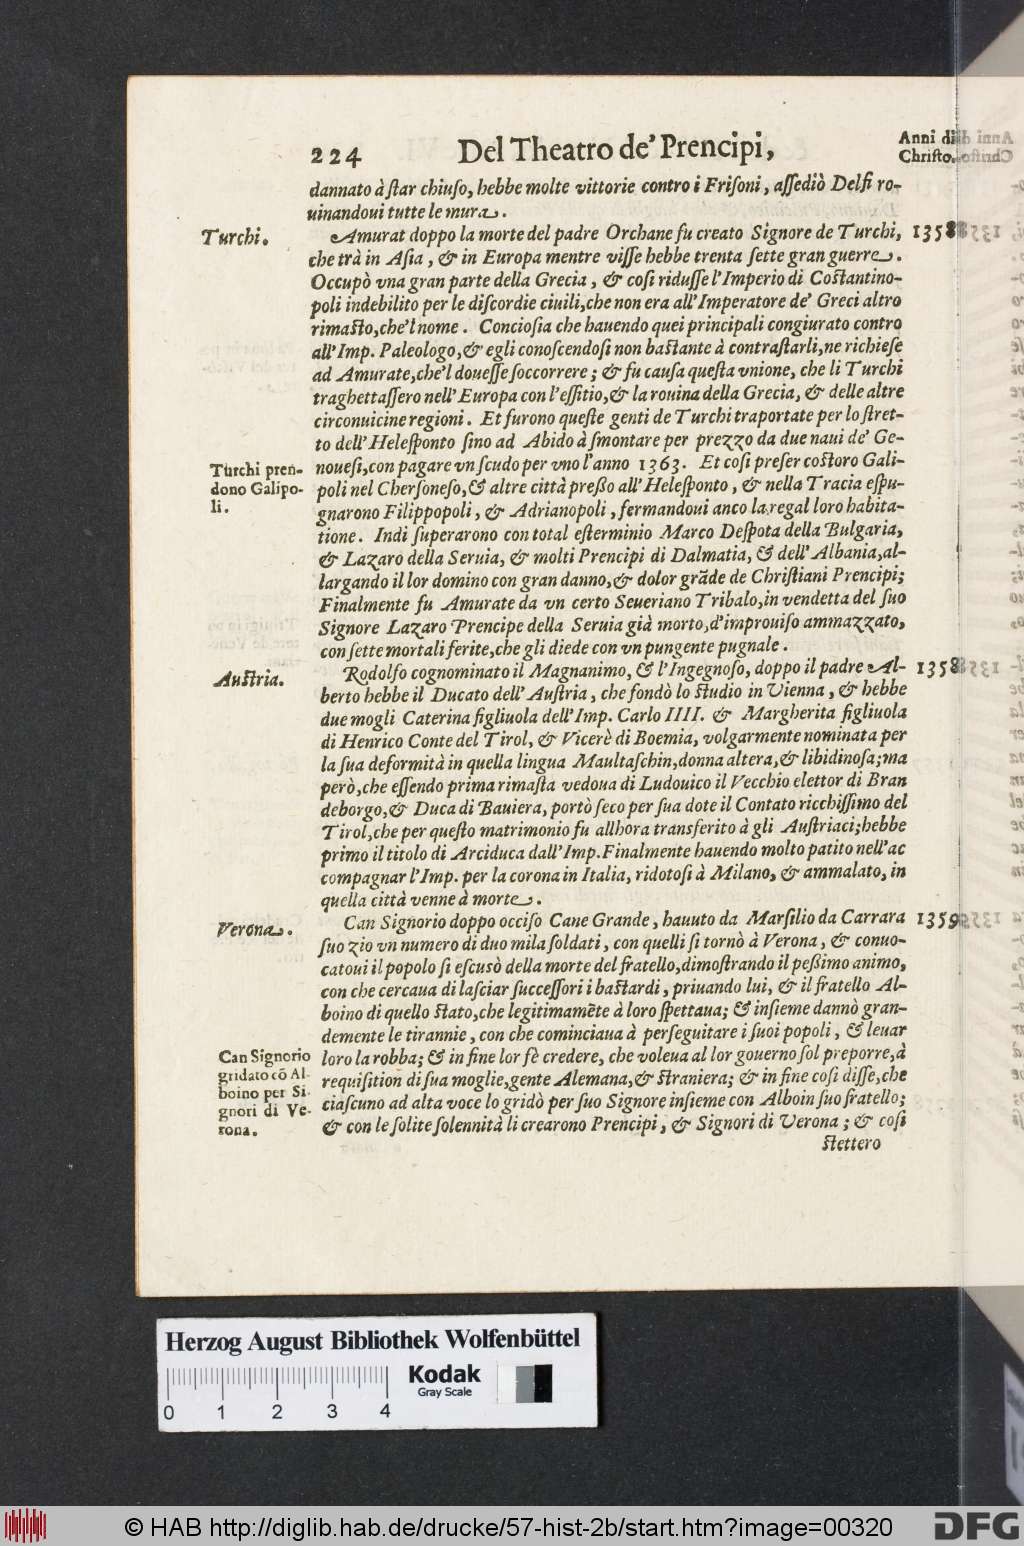 224 Del Theatro de' Prencipi, Anni di
Christo.
dannato à star chiuso, hebbe molte vittorie contro i Frisoni, assediò Delfi ro-
uinandoui tutte le mura.
Turchi.
Amurat doppo la morte del padre Orchane fu creato Signore de Turchi, 1358
che trà in Asia, & in Europa mentre visse hebbe trenta sette gran guerre.
Occupò vna gran parte della Grecia, & cosi ridusse l'Imperio di Costantino-
poli indebilito per le discordie ciuili, che non era all'Imperatore de' Greci altro
rimasto, che'l nome. Conciosia che hauendo quei principali congiurato contro
all'Imp. Paleologo, & egli conoscendosi non bastante à contrastarli, ne richiese
ad Amurate, che'l douesse soccorrere; & fu causa questa vnione, che li Turchi
traghettassero nell'Europa con l'essitio, & la rouina della Grecia, & delle altre
circonuicine regioni. Et furono queste genti de Turchi traportate per lo stret-
to dell'Helesponto sino ad Abido à smontare per prezzo da due naui de' Ge-
nouesi, con pagare vn scudo per vno l'anno 1363. Et cosi preser costoro Gali-
Turchi pren-
dono Galipo-
li.
poli nel Chersoneso, & altre città presso all'Helesponto, & nella Tracia espu-
gnarono Filippopoli, & Adrianopoli, fermandoui anco la regal loro habita-
tione. Indi superarono con total esterminio Marco Despota della Bulgaria,
& Lazaro della Seruia, & molti Prencipi di Dalmatia, & dell'Albania, al-
largando il lor domino con gran danno, & dolor grãde de Christiani Prencipi;
Finalmente fu Amurate da vn certo Seueriano Tribalo, in vendetta del suo
Signore Lazaro Prencipe della Seruia già morto, d'improuiso ammazzato,
con sette mortali ferite, che gli diede con vn pungente pugnale.
Austria.
Rodolfo cognominato il Magnanimo, & l'Ingegnoso, doppo il padre Al- 1358
berto hebbe il Ducato dell'Austria, che fondò lo studio in Vienna, & hebbe
due mogli Caterina figliuola dell'Imp. Carlo IIII. & Margherita figliuola
di Henrico Conte del Tirol, & Vicerè di Boemia, volgarmente nominata per
la sua deformità in quella lingua Maultaschin, donna altera, & libidinosa; ma
però, che essendo prima rimasta vedoua di Ludouico il Vecchio elettor di Bran
deborgo, & Duca di Bauiera, portò seco per sua dote il Contato ricchissimo del
Tirol, che per questo matrimonio fu allhora transferito à gli Austriaci; hebbe
primo il titolo di Arciduca dall'Imp. Finalmente hauendo molto patito nell'ac
compagnar l'Imp. per la corona in Italia, ridotosi à Milano, & ammalato, in
quella città venne à morte.
Verona.
Can Signorio doppo occiso Cane Grande, hauuto da Marsilio da Carrara 1359
suo zio vn numero di duo mila soldati, con quelli si tornò à Verona, & conuo-
catoui il popolo si escusò della morte del fratello, dimostrando il pessimo animo,
con che cercaua di lasciar successori i bastardi, priuando lui, & il fratello Al-
boino di quello stato, che legitimamẽte à loro spettaua; & insieme dannò gran-
demente le tirannie, con che cominciaua à perseguitare i suoi popoli, & leuar
Can Signorio
gridato cõ Al-
boino per Si-
gnori di Ve-
rona.
loro la robba; & in fine lor fè credere, che voleua al lor gouerno sol preporre, à
requisition di sua moglie, gente Alemana, & straniera; & in fine cosi disse, che
ciascuno ad alta voce lo gridò per suo Signore insieme con Alboin suo fratello;
& con le solite solennità li crearono Prencipi, & Signori di Verona; & cosi
stettero
Herzog August Bibliothek Wolfenbüttel
Kodak
Gray Scale
0 1 2 3 4
© HAB http://diglib.hab.de/drucke/57-hist-2b/start.htm?image=00320
DFG